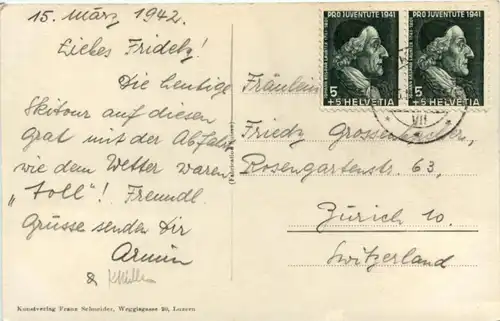 15. März 1942.
Liebes Fridely!
Die heutige
Skitour auf diesen
Grat mit der Abfahrt
wie dem Wetter waren
„toll"! Freundl.
Grüsse senden Dir
Armin
&
PRO JUVENTUTE 1941
5
+5 HELVETIA
PRO JUVENTUTE 1941
5
+5 HELVETIA
VII
Fräulein
Friedy Grossenbacher,
Rosengartenstr. 63,
Zürich 10.
Switzerland
Kunstverlag Franz Schneider, Weggisgasse 20, Luzern